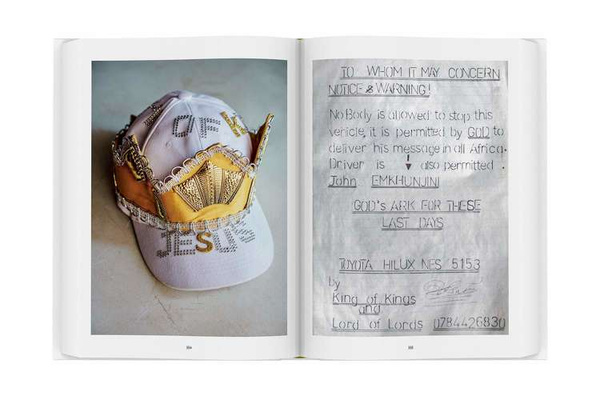 OF K
JESUS
TO WHOM IT MAY CONCERN
NOTICE & WARNING!
NoBody is allowed to stop this
vericle, it is permitted by GOD to
deliver his message in all Africa.
Driver is also permitted.
John EMKHUNJINI
GOD's ARK FOR THESE
LAST DAYS
TOYOTA HILUX 5153
by
King of Kings
and
Lord of Lords 0784426830